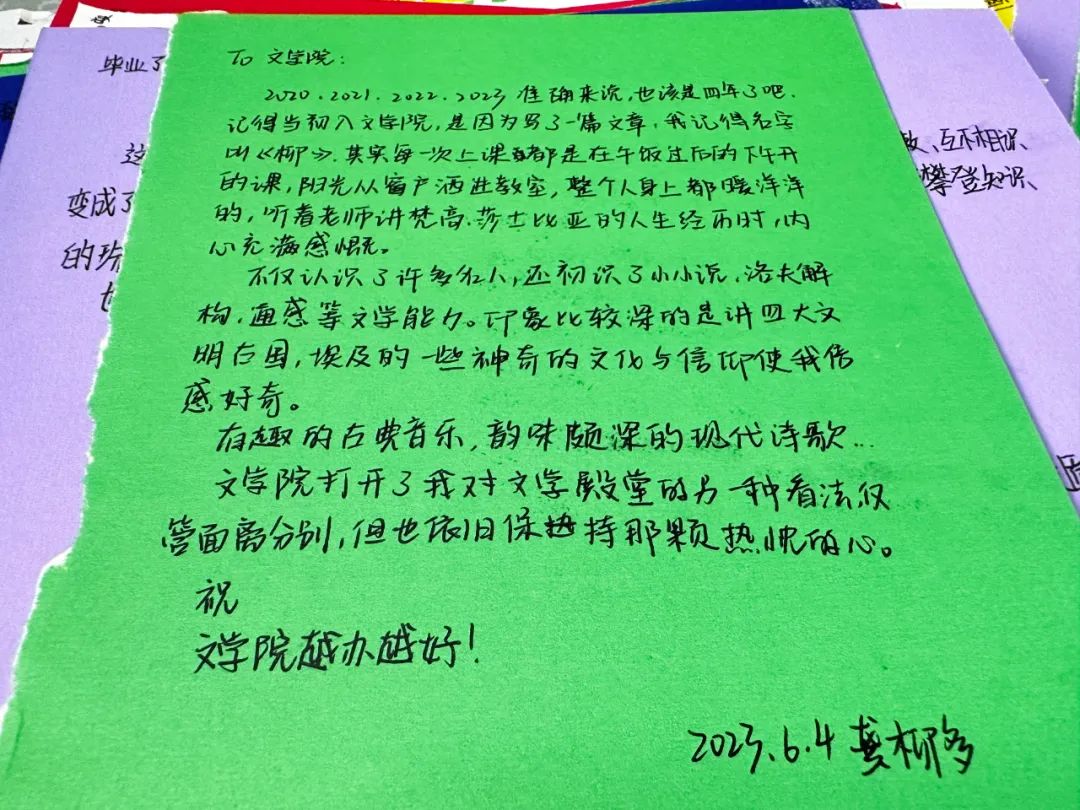 To 文学院：
2020.2021.2022.2023 准确来说,也该是四年了吧.
记得当初入文学院,是因为写了一篇文章,我记得名字
叫《柳》.其实每一次上课都是在午饭过后的下午开
的课,阳光从窗户洒进教室,整个人身上都暖洋洋
的,听着老师讲梵高.莎士比亚的人生经历时,内
心充满感慨。
不仅认识了许多名人,还初识了小小说.洛夫解
构.通感等文学能力。印象比较深的是讲四大文
明古国,埃及的一些神奇的文化与信仰使我倍
感好奇。
有趣的古典音乐,韵味颇深的现代诗歌...
文学院打开了我对文学殿堂的另一种看法仅
管面离分别,但也依旧保持那颗热忱的心。
祝
文学院越办越好!
2023.6.4 龚柳多
毕业了
这
变成了
的
互不相识、
攀登知识、